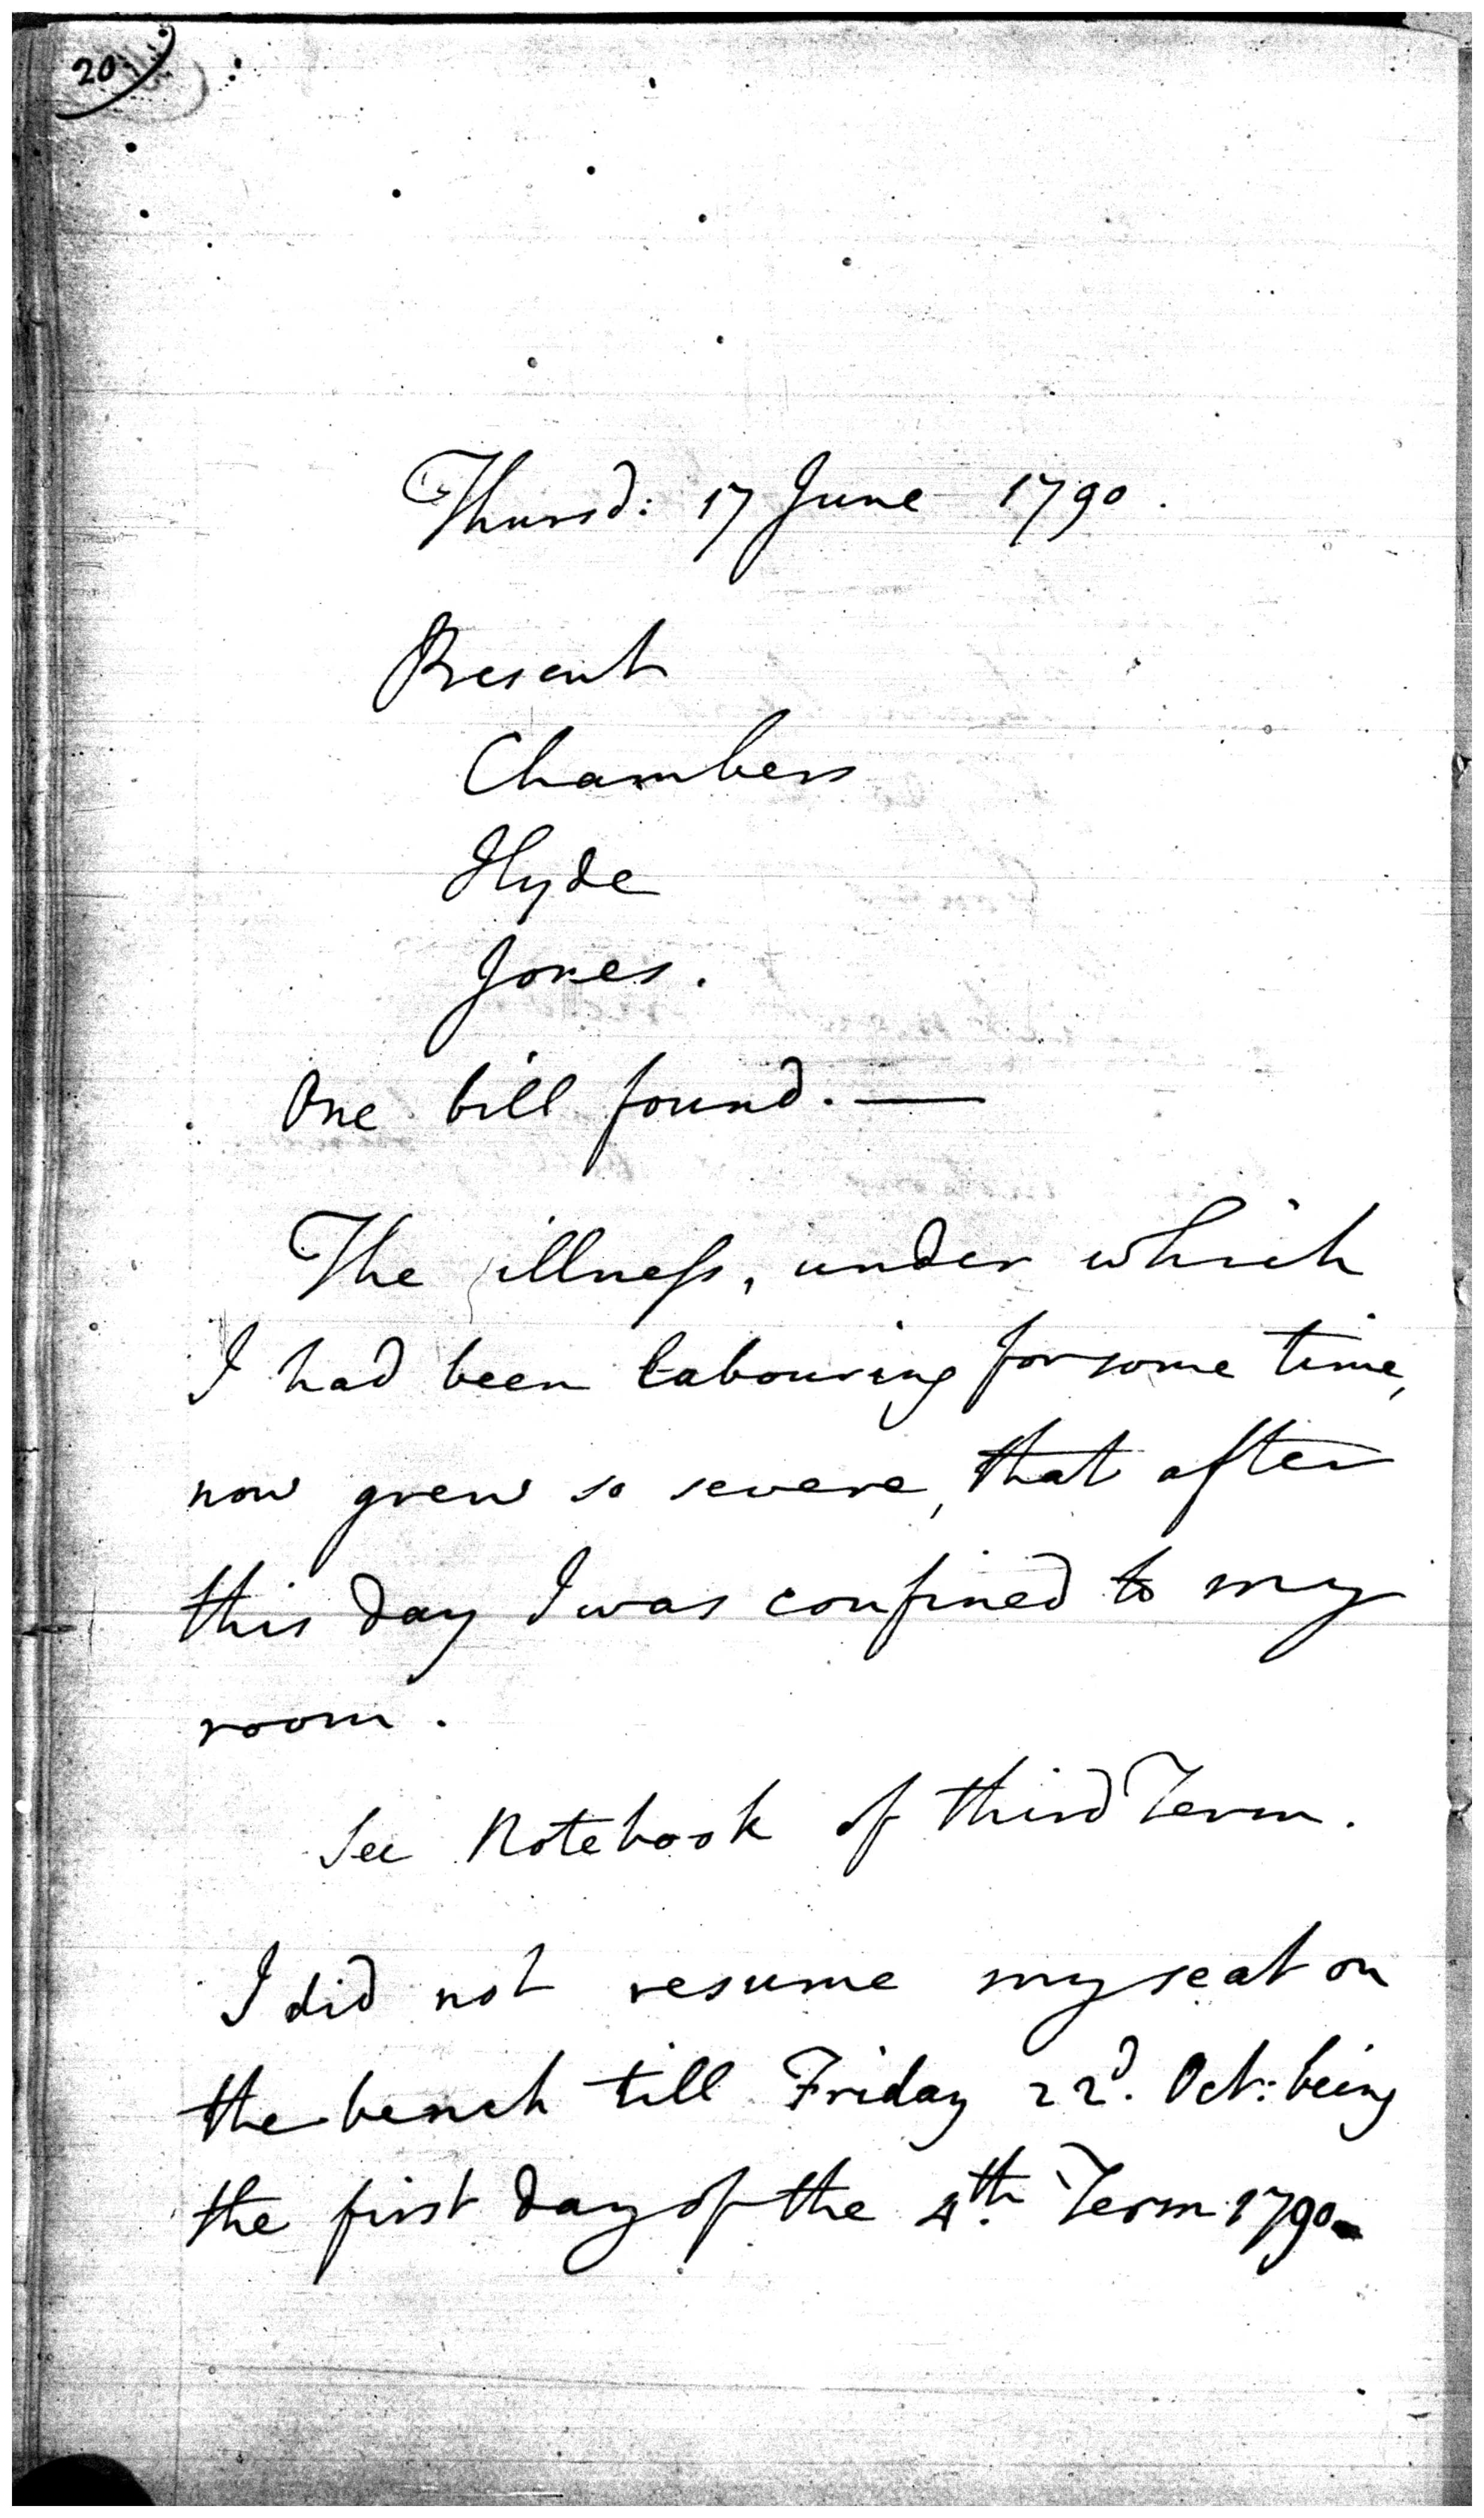 20
Thursd: 17 June 1790.
Present
Chambers
Hyde
Jones.
One bill found. —
The illness, under which
I had been labouring for some time,
now grew so severe, that after
this day I was confined to my
room.
See Notebook of third Term.
I did not resume my seat on
the bench till Friday 22d. Oct: being
the first day of the 4th. Term 1790